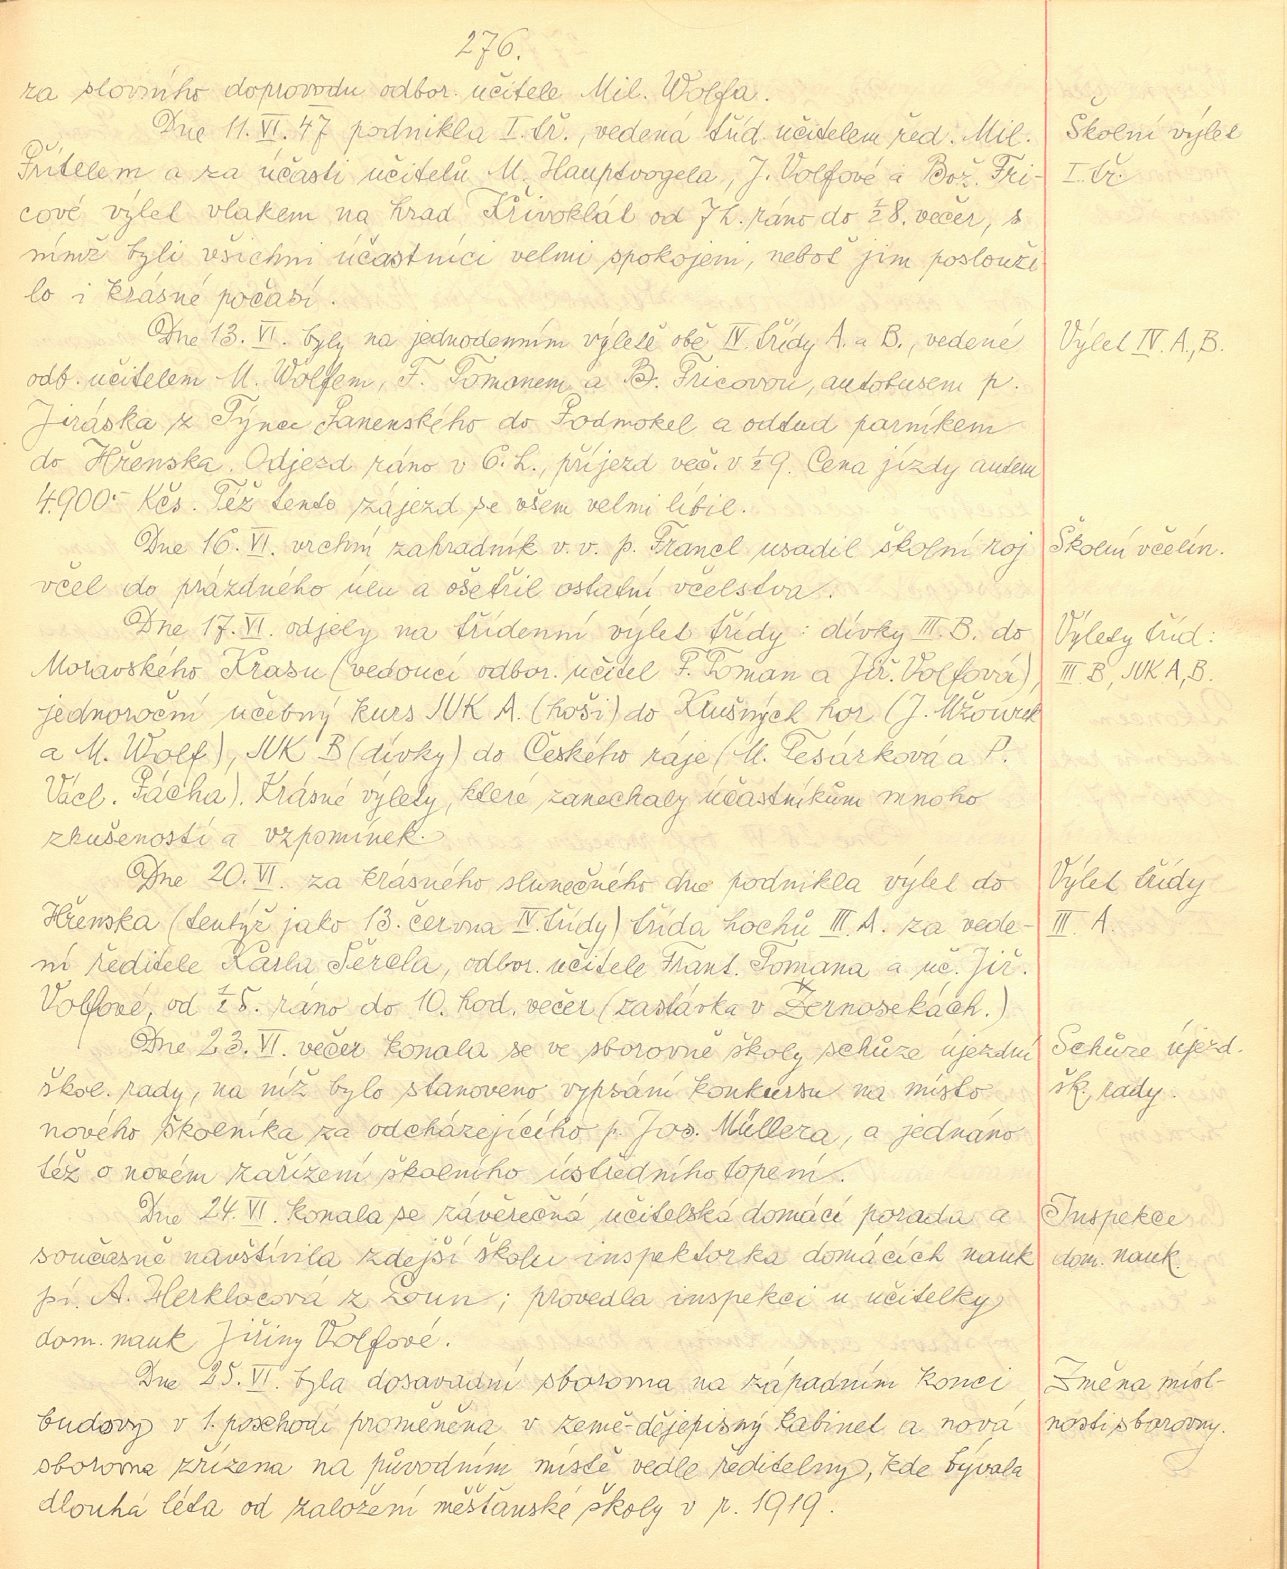 276.
za slovního doprovodu odbor. učitele Mil. Wolfa.
Dne 11. VI. 47 podnikla I. tř., vedená tříd. učitelem řed. Mil.
Školní výlet
Přítelem a za účasti učitelů M. Hauptvogela, J. Volfové a Bož. Fri-
I. tř.
cové výlet vlakem na hrad Křivoklát od 7 h. ráno do ½ 8. večer, s
nímž byli všichni účastníci velmi spokojeni, neboť jim poslouži
lo i krásné počasí.
Dne 13. VI. byly na jednodenním výletě obě IV. třídy A. a B., vedené
Výlet IV. A., B.
odb. učitelem M. Wolfem, F. Tomanem a B. Fricovou, autobusem p.
Jiráska z Týnce Panenského do Podmokel a odtud parníkem
do Hřenska. Odjezd ráno v 6. h., příjezd več. v ½ 9. Cena jízdy autem
4.900.- Kčs. Též tento zájezd se všem velmi líbil.
Dne 16. VI. vrchní zahradník v. v. p. Francl usadil školní roj
Školní včelín.
včel do prázdného úlu a ošetřil ostatní včelstva.
Dne 17. VI. odjely na třídenní výlet třídy: dívky III. B. do
Výlety tříd:
Moravského Krasu (vedoucí odbor. učitel F. Toman a Jiř. Volfová),
III. B, JUK A, B.
jednoroční učebný kurs JUK A. (hoši) do Krušných hor (J. Mžourek
a M. Wolf), JUK B (dívky) do Českého ráje (M. Tesárková a P.
Václ. Pácha). Krásné výlety, které zanechaly účastníkům mnoho
zkušeností a vzpomínek.
Dne 20. VI. za krásného slunečného dne podnikla výlet do
Výlet třídy
Hřenska (tentýž jako 13. června IV. třídy) třída hochů III. A. za vede-
III. A.
ní ředitele Karla Šercla, odbor. učitele Frant. Tomana a uč. Jiř.
Volfové, od ½ 5. ráno do 10. hod. večer (zastávka v Žernosekách.)
Dne 23. VI. večer konala se ve sborovně školy schůze újezdní
Schůze újezd.
škol. rady, na níž bylo stanoveno vypsání konkursu na místo
šk. rady.
nového školníka za odcházejícího p. Jos. Müllera, a jednáno
též o novém zařízení školního ústředního topení.
Dne 24. VI. konala se závěrečná učitelská domácí porada a
Inspekce
současně navštívila zdejší školu inspektorka domácích nauk
dom. nauk.
pí. A. Herklocová z Loun; provedla inspekci u učitelky
dom. nauk Jiřiny Volfové.
Dne 25. VI. byla dosavadní sborovna na západním konci
Změna míst-
budovy v 1. poschodí proměněna v země-dějepisný kabinet a nová
nosti sborovny.
sborovna zřízena na původním místě vedle ředitelny, kde bývala
dlouhá léta od založení měšťanské školy v r. 1919.